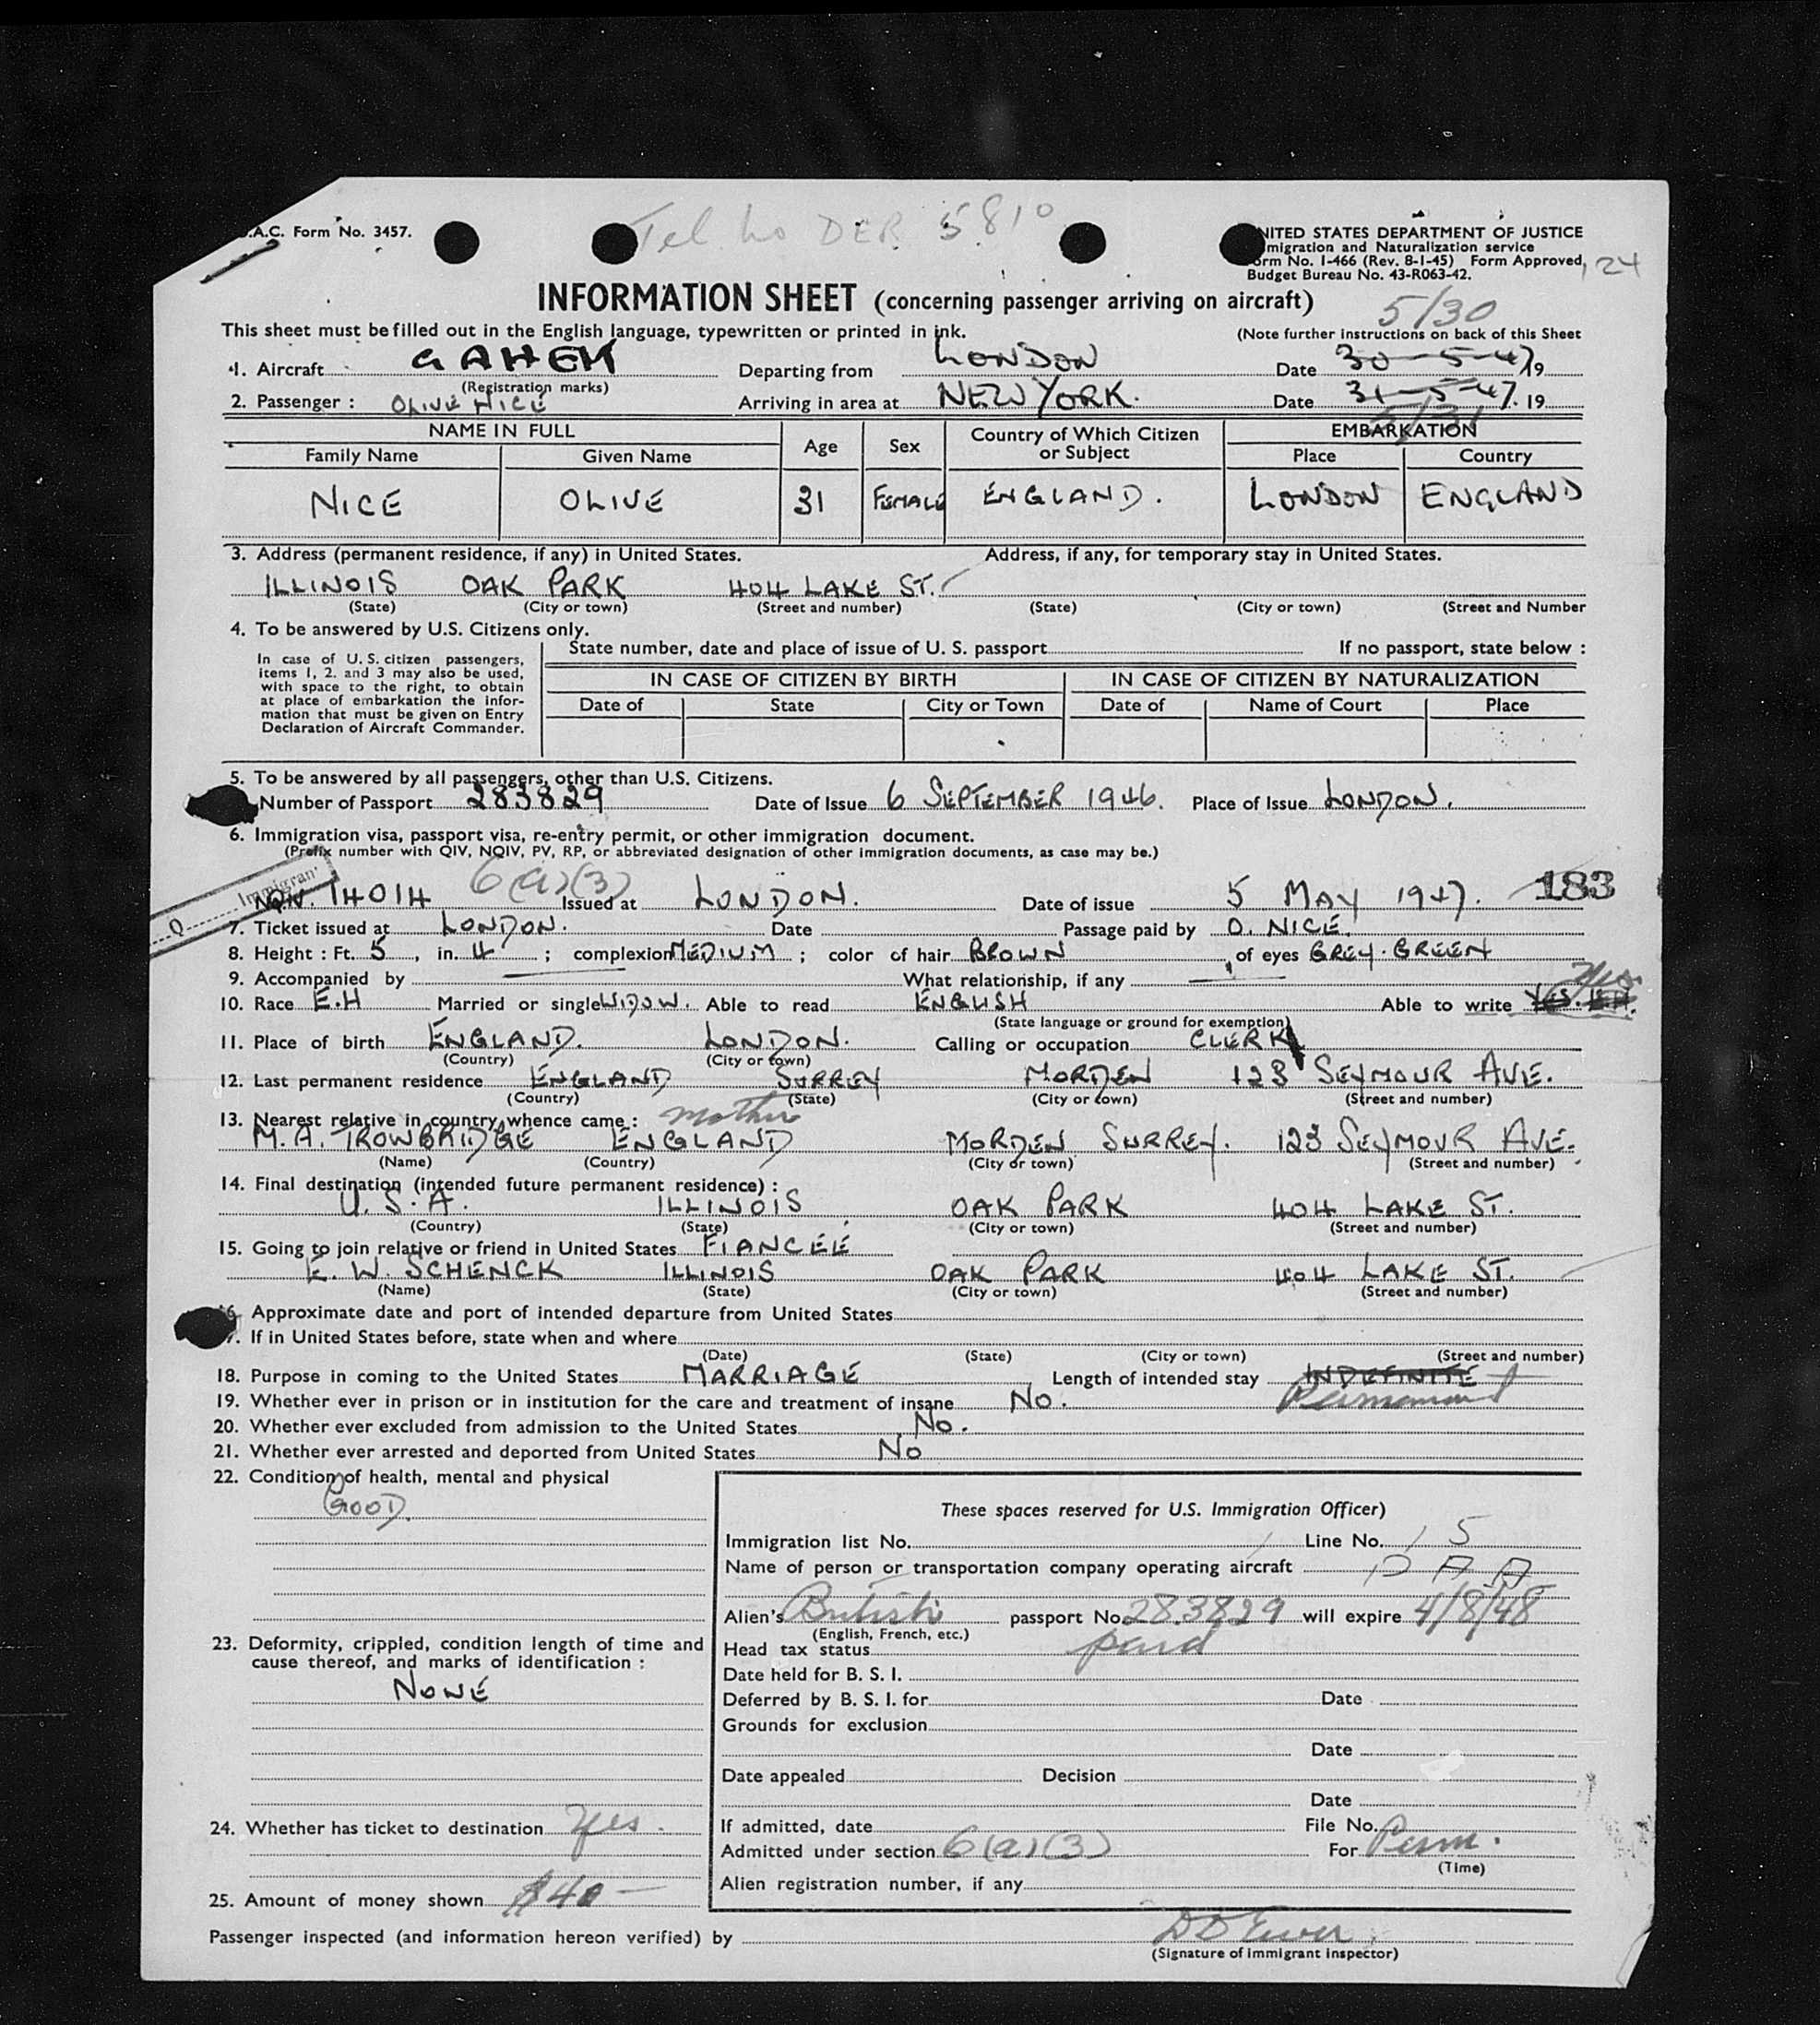 .A.C. Form No. 3457.
Tel. no DER 5810
NITED STATES DEPARTMENT OF JUSTICE
migration and Naturalization service
orm No. I-466 (Rev. 8-1-45) Form Approved,
Budget Bureau No. 43-R063-42.
24
INFORMATION SHEET (concerning passenger arriving on aircraft)
5/30
This sheet must be filled out in the English language, typewritten or printed in ink.
(Note further instructions on back of this Sheet
1. Aircraft GAHEM Departing from LONDON Date 30-5-47 19
(Registration marks)
2. Passenger : OLIVE NICE Arriving in area at NEW YORK. Date 31-5-47. 19
5/31
NAME IN FULL Age Sex Country of Which Citizen or Subject EMBARKATION
Family Name Given Name Place Country
NICE OLIVE 31 FEMALE ENGLAND. LONDON ENGLAND
3. Address (permanent residence, if any) in United States. Address, if any, for temporary stay in United States.
ILLINOIS OAK PARK 404 LAKE ST.
(State) (City or town) (Street and number) (State) (City or town) (Street and Number
4. To be answered by U.S. Citizens only.
State number, date and place of issue of U. S. passport If no passport, state below :
In case of U. S. citizen passengers,
items 1, 2. and 3 may also be used,
with space to the right, to obtain
at place of embarkation the infor-
mation that must be given on Entry
Declaration of Aircraft Commander.
IN CASE OF CITIZEN BY BIRTH IN CASE OF CITIZEN BY NATURALIZATION
Date of State City or Town Date of Name of Court Place
5. To be answered by all passengers, other than U.S. Citizens.
Number of Passport 283829 Date of Issue 6 SEPTEMBER 1946. Place of Issue LONDON.
6. Immigration visa, passport visa, re-entry permit, or other immigration document.
(Prefix number with QIV, NQIV, PV, RP, or abbreviated designation of other immigration documents, as case may be.)
Q Immigran
NQIV. 14014 6(a)(3) Issued at LONDON. Date of issue 5 MAY 1947. 183
7. Ticket issued at LONDON. Date Passage paid by O. NICE.
8. Height : Ft. 5, in. 4 ; complexion MEDIUM ; color of hair BROWN of eyes GREY-GREEN
9. Accompanied by — What relationship, if any —
Yes
10. Race E.H Married or single WIDOW. Able to read ENGLISH Able to write YES. E.H.
(State language or ground for exemption)
11. Place of birth ENGLAND. LONDON. Calling or occupation CLERK
(Country) (City or town)
12. Last permanent residence ENGLAND SURREY MORDEN 123 SEYMOUR AVE.
(Country) (State) (City or town) (Street and number)
13. Nearest relative in country whence came : mother
M. A. TROWBRIDGE ENGLAND MORDEN SURREY. 123 SEYMOUR AVE.
(Name) (Country) (City or town) (Street and number)
14. Final destination (intended future permanent residence) :
U. S. A. ILLINOIS OAK PARK 404 LAKE ST.
(Country) (State) (City or town) (Street and number)
15. Going to join relative or friend in United States FIANCÉE
E. W. SCHENCK ILLINOIS OAK PARK 404 LAKE ST.
(Name) (State) (City or town) (Street and number)
6. Approximate date and port of intended departure from United States
7. If in United States before, state when and where
(Date) (State) (City or town) (Street and number)
18. Purpose in coming to the United States MARRIAGE Length of intended stay INDEFINITE
Permanent
19. Whether ever in prison or in institution for the care and treatment of insane NO.
20. Whether ever excluded from admission to the United States NO.
21. Whether ever arrested and deported from United States NO
22. Condition of health, mental and physical
GOOD.
These spaces reserved for U.S. Immigration Officer)
Immigration list No. Line No. 5
Name of person or transportation company operating aircraft P A A
Alien's British passport No. 283829 will expire 4/8/48
(English, French, etc.)
Head tax status paid
Date held for B. S. I.
Deferred by B. S. I. for Date
Grounds for exclusion
Date
Date appealed Decision
Date
If admitted, date File No.
Admitted under section 6(a)(3) For Perm.
(Time)
Alien registration number, if any
23. Deformity, crippled, condition length of time and
cause thereof, and marks of identification :
NONE
24. Whether has ticket to destination Yes.
25. Amount of money shown $40 —
Passenger inspected (and information hereon verified) by
(Signature of immigrant inspector)